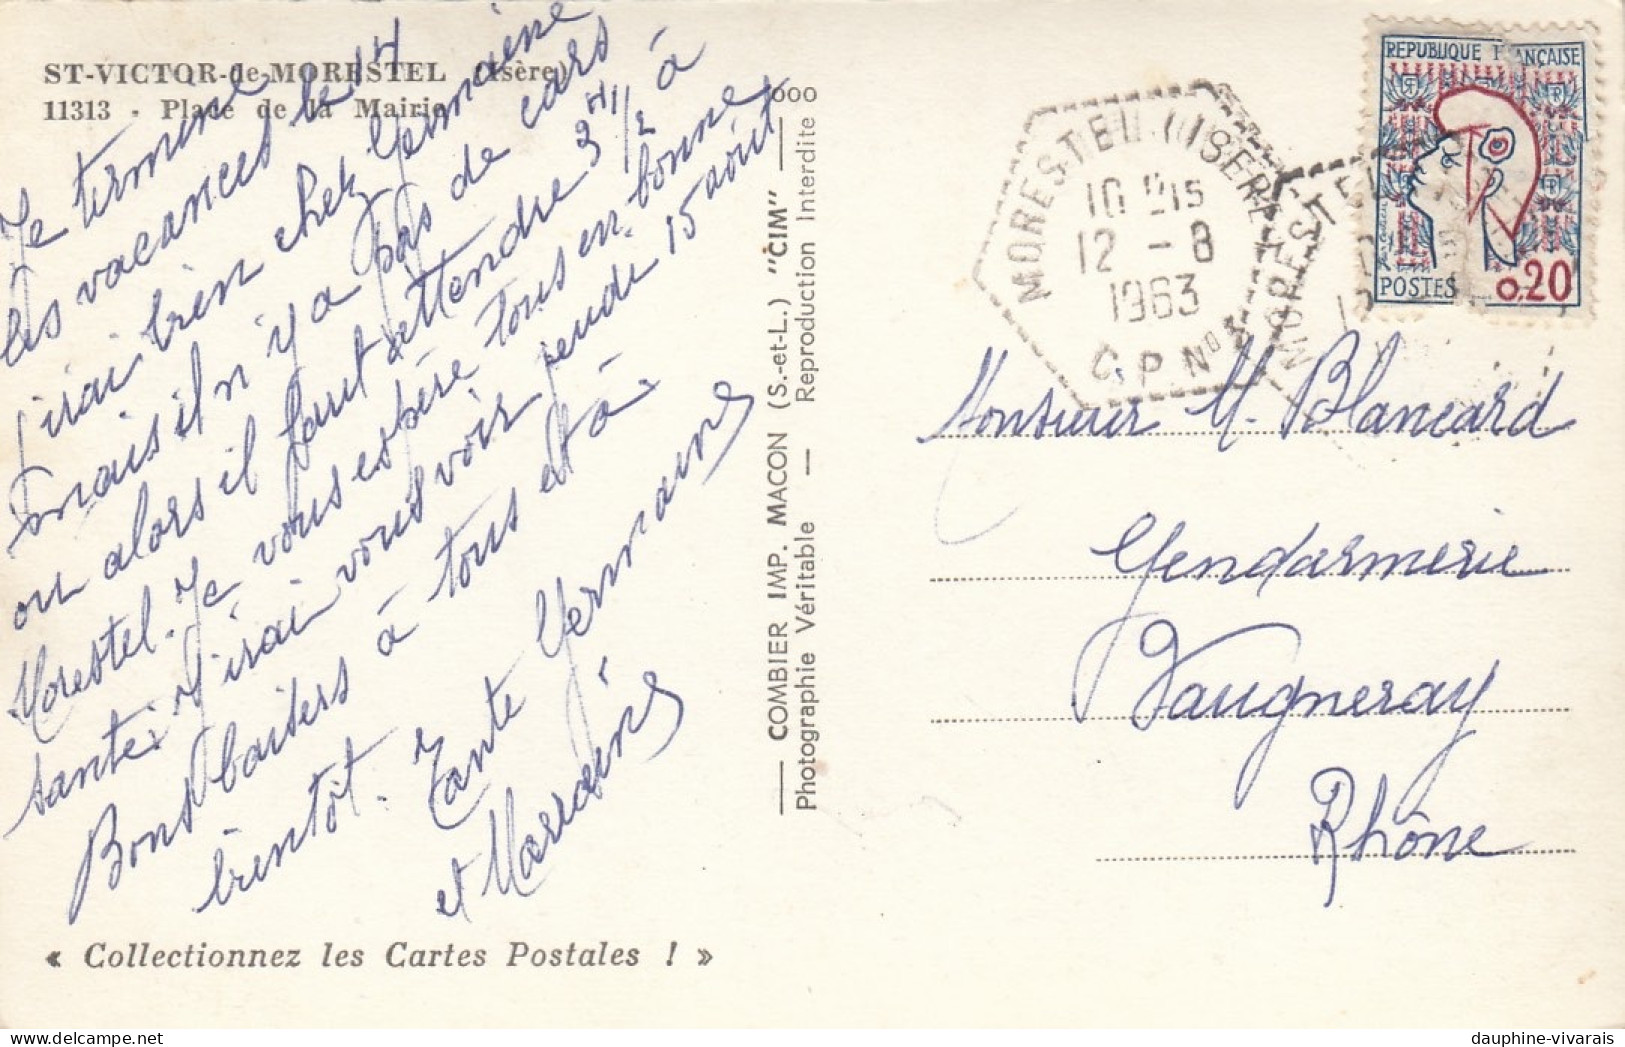 ST-VICTOR-de-MORESTEL (Isère)
11313 - Place de la Mairie
Je termine
les vacances le 14
j'irai bien chez Germaine
mais il n'y a pas de cars
ou alors il faut attendre 3 H 1/2 à
Morestel. Je vous espère tous en bonne
santé. J'irai vous voir 15 août
Bons baisers à tous et à
bientôt. Tante Germaine
et
« Collectionnez les Cartes Postales ! »
COMBIER IMP. MACON (S.-et-L.) "CIM"
Photographie Véritable — Reproduction Interdite
000
REPUBLIQUE FRANÇAISE
RF
POSTES
0,20
MORESTEL (ISERE)
10 H 15
12 - 8
1963
C.P. No 3
MORESTEL
Monsieur M. Blancard
Gendarmerie
Vaugneray
Rhône
dauphine-vivarais